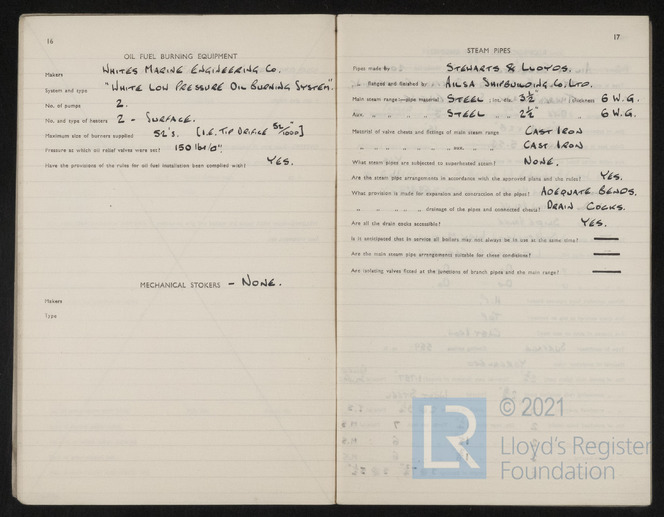 16
OIL FUEL BURNING EQUIPMENT
Makers WHITES MARINE ENGINEERING CO.
System and type "WHITE LOW PRESSURE OIL BURNING SYSTEM".
No. of pumps 2.
No. and type of heaters 2 - SURFACE.
Maximum size of burners supplied 52's. [I.E. TIP ORIFICE 52/1000"]
Pressure at which oil relief valves were set? 150 lbs/□".
Have the provisions of the rules for oil fuel installation been complied with? YES.
MECHANICAL STOKERS - NONE.
Makers
Type
17
STEAM PIPES
Pipes made by STEWARTS & LLOYDS.
" flanged and finished by AILSA SHIPBUILDING Co. LTD.
Main steam range:—pipe material STEEL ; int. dia. 3½" thickness 6 W.G.
Aux. " " " STEEL " " 2½" " 6 W.G.
Material of valve chests and fittings of main steam range CAST IRON
" " " " " aux. " " CAST IRON
What steam pipes are subjected to superheated steam? NONE.
Are the steam pipe arrangements in accordance with the approved plans and the rules? YES.
What provision is made for expansion and contraction of the pipes? ADEQUATE BENDS.
" " " " drainage of the pipes and connected chests? DRAIN COCKS.
Are all the drain cocks accessible? YES.
Is it anticipated that in service all boilers may not always be in use at the same time? —
Are the main steam pipe arrangements suitable for these conditions? —
Are isolating valves fitted at the junctions of branch pipes and the main range? —
LR
© 2021
Lloyd's Register
Foundation